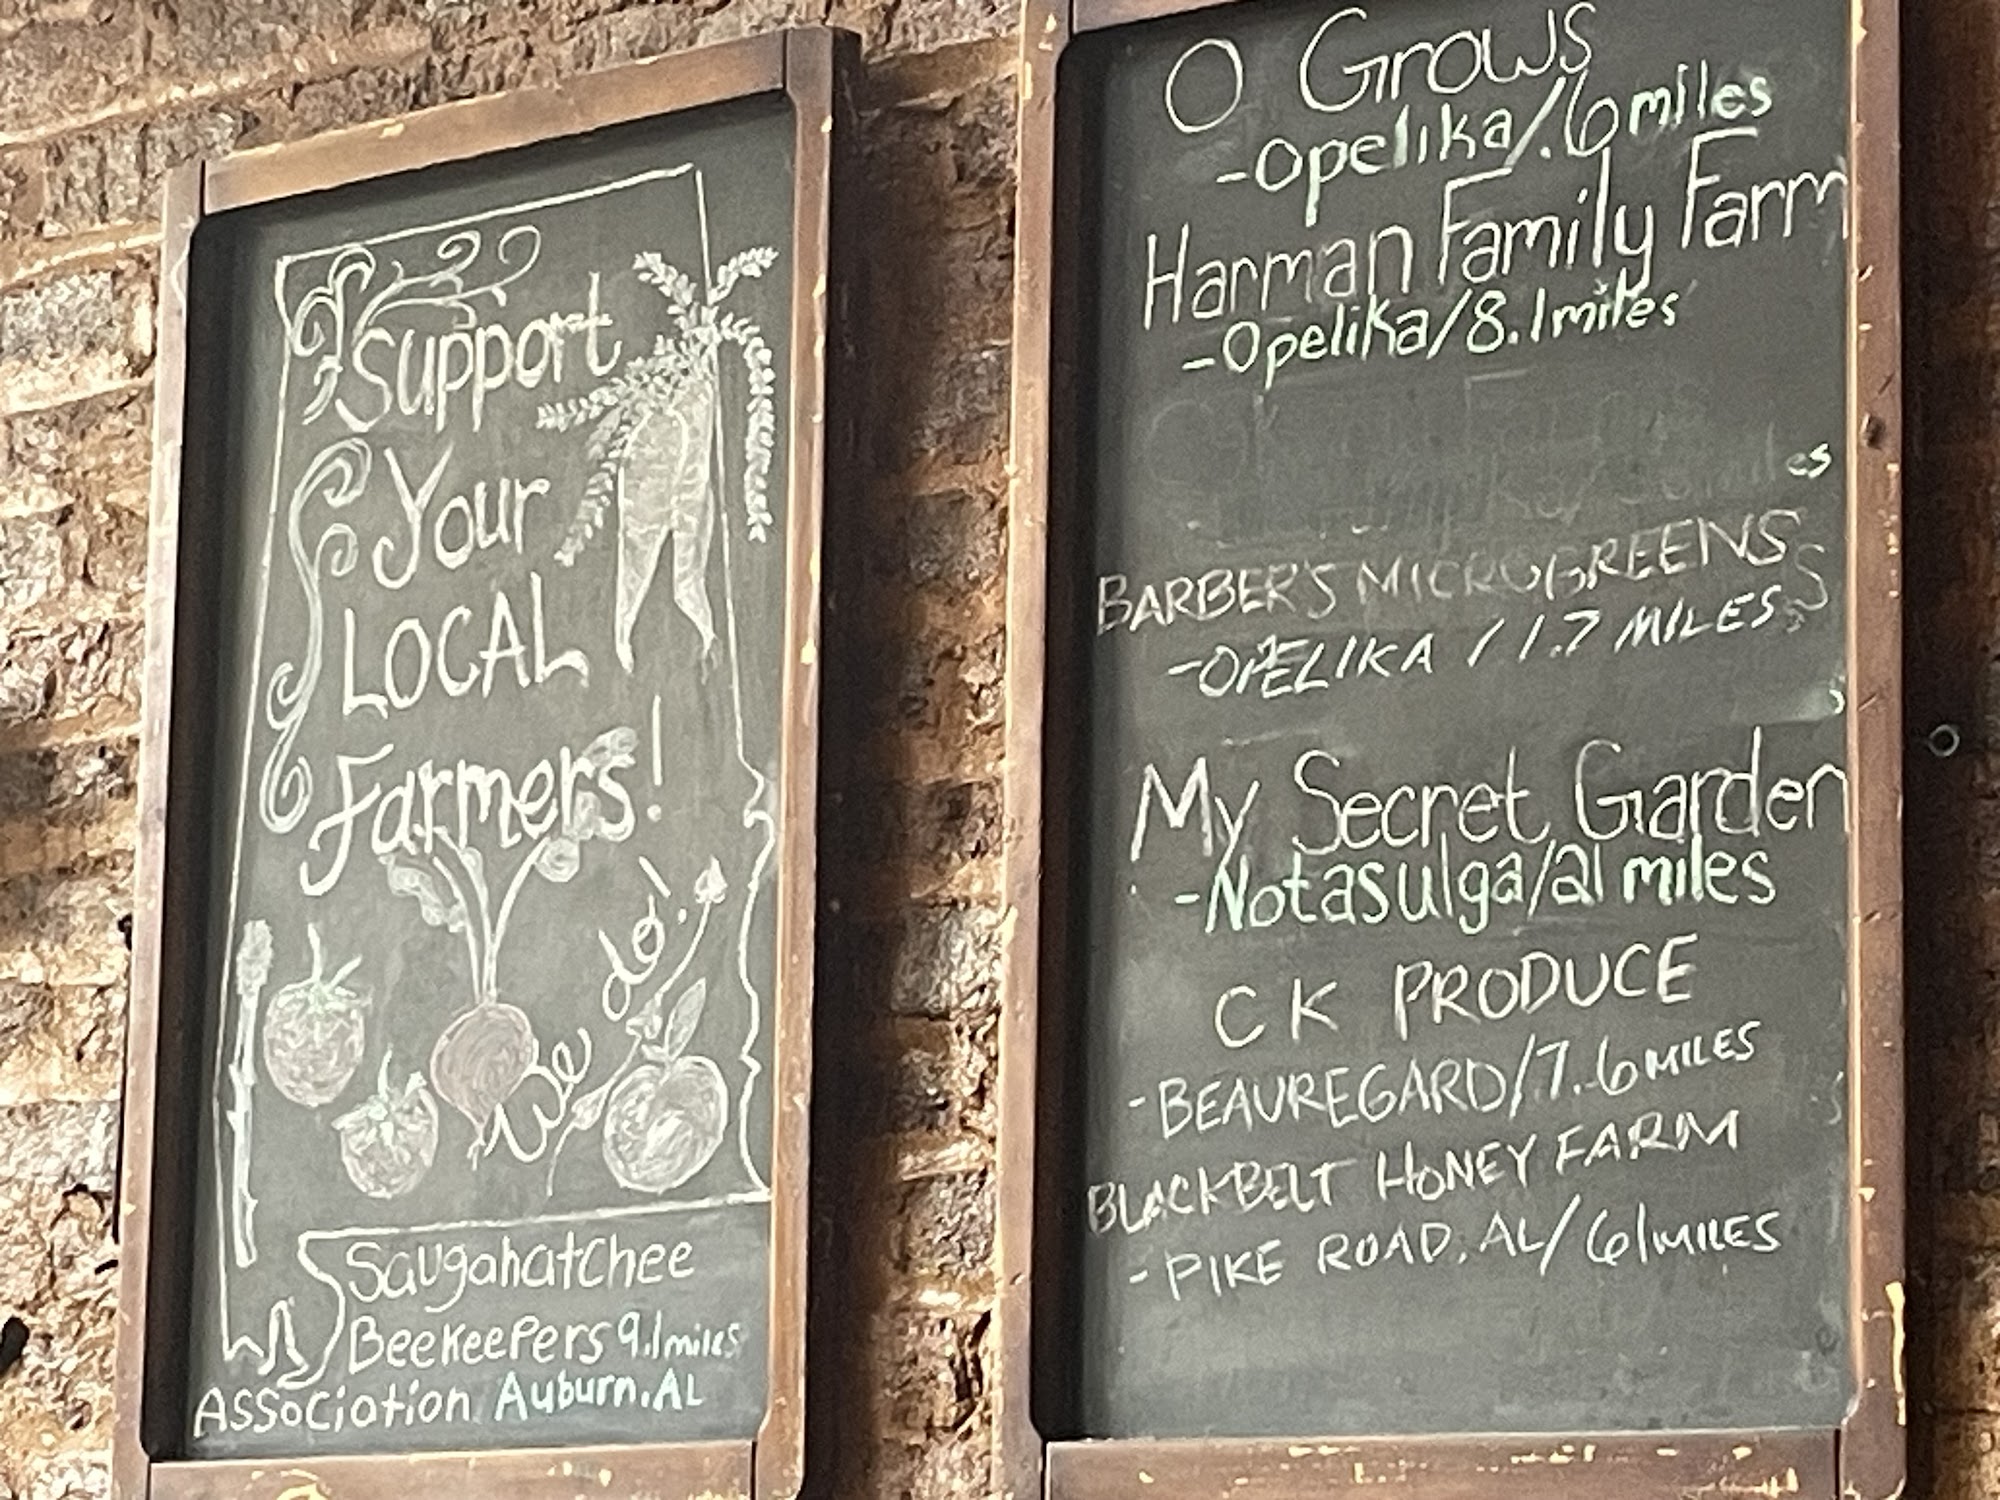 Support
Your
LOCAL
Farmers!
We do!
Saugahatchee
Beekeepers 9.1miles
Association Auburn, AL
O Grows
-Opelika/.6miles
Harman Family Farm
-Opelika/8.1miles
es
BARBER'S MICROGREENS
-OPELIKA / 1.7 MILES
My Secret Garden
-Notasulga/21 miles
CK PRODUCE
-BEAUREGARD/7.6MILES
BLACKBELT HONEY FARM
-PIKE ROAD, AL/61MILES